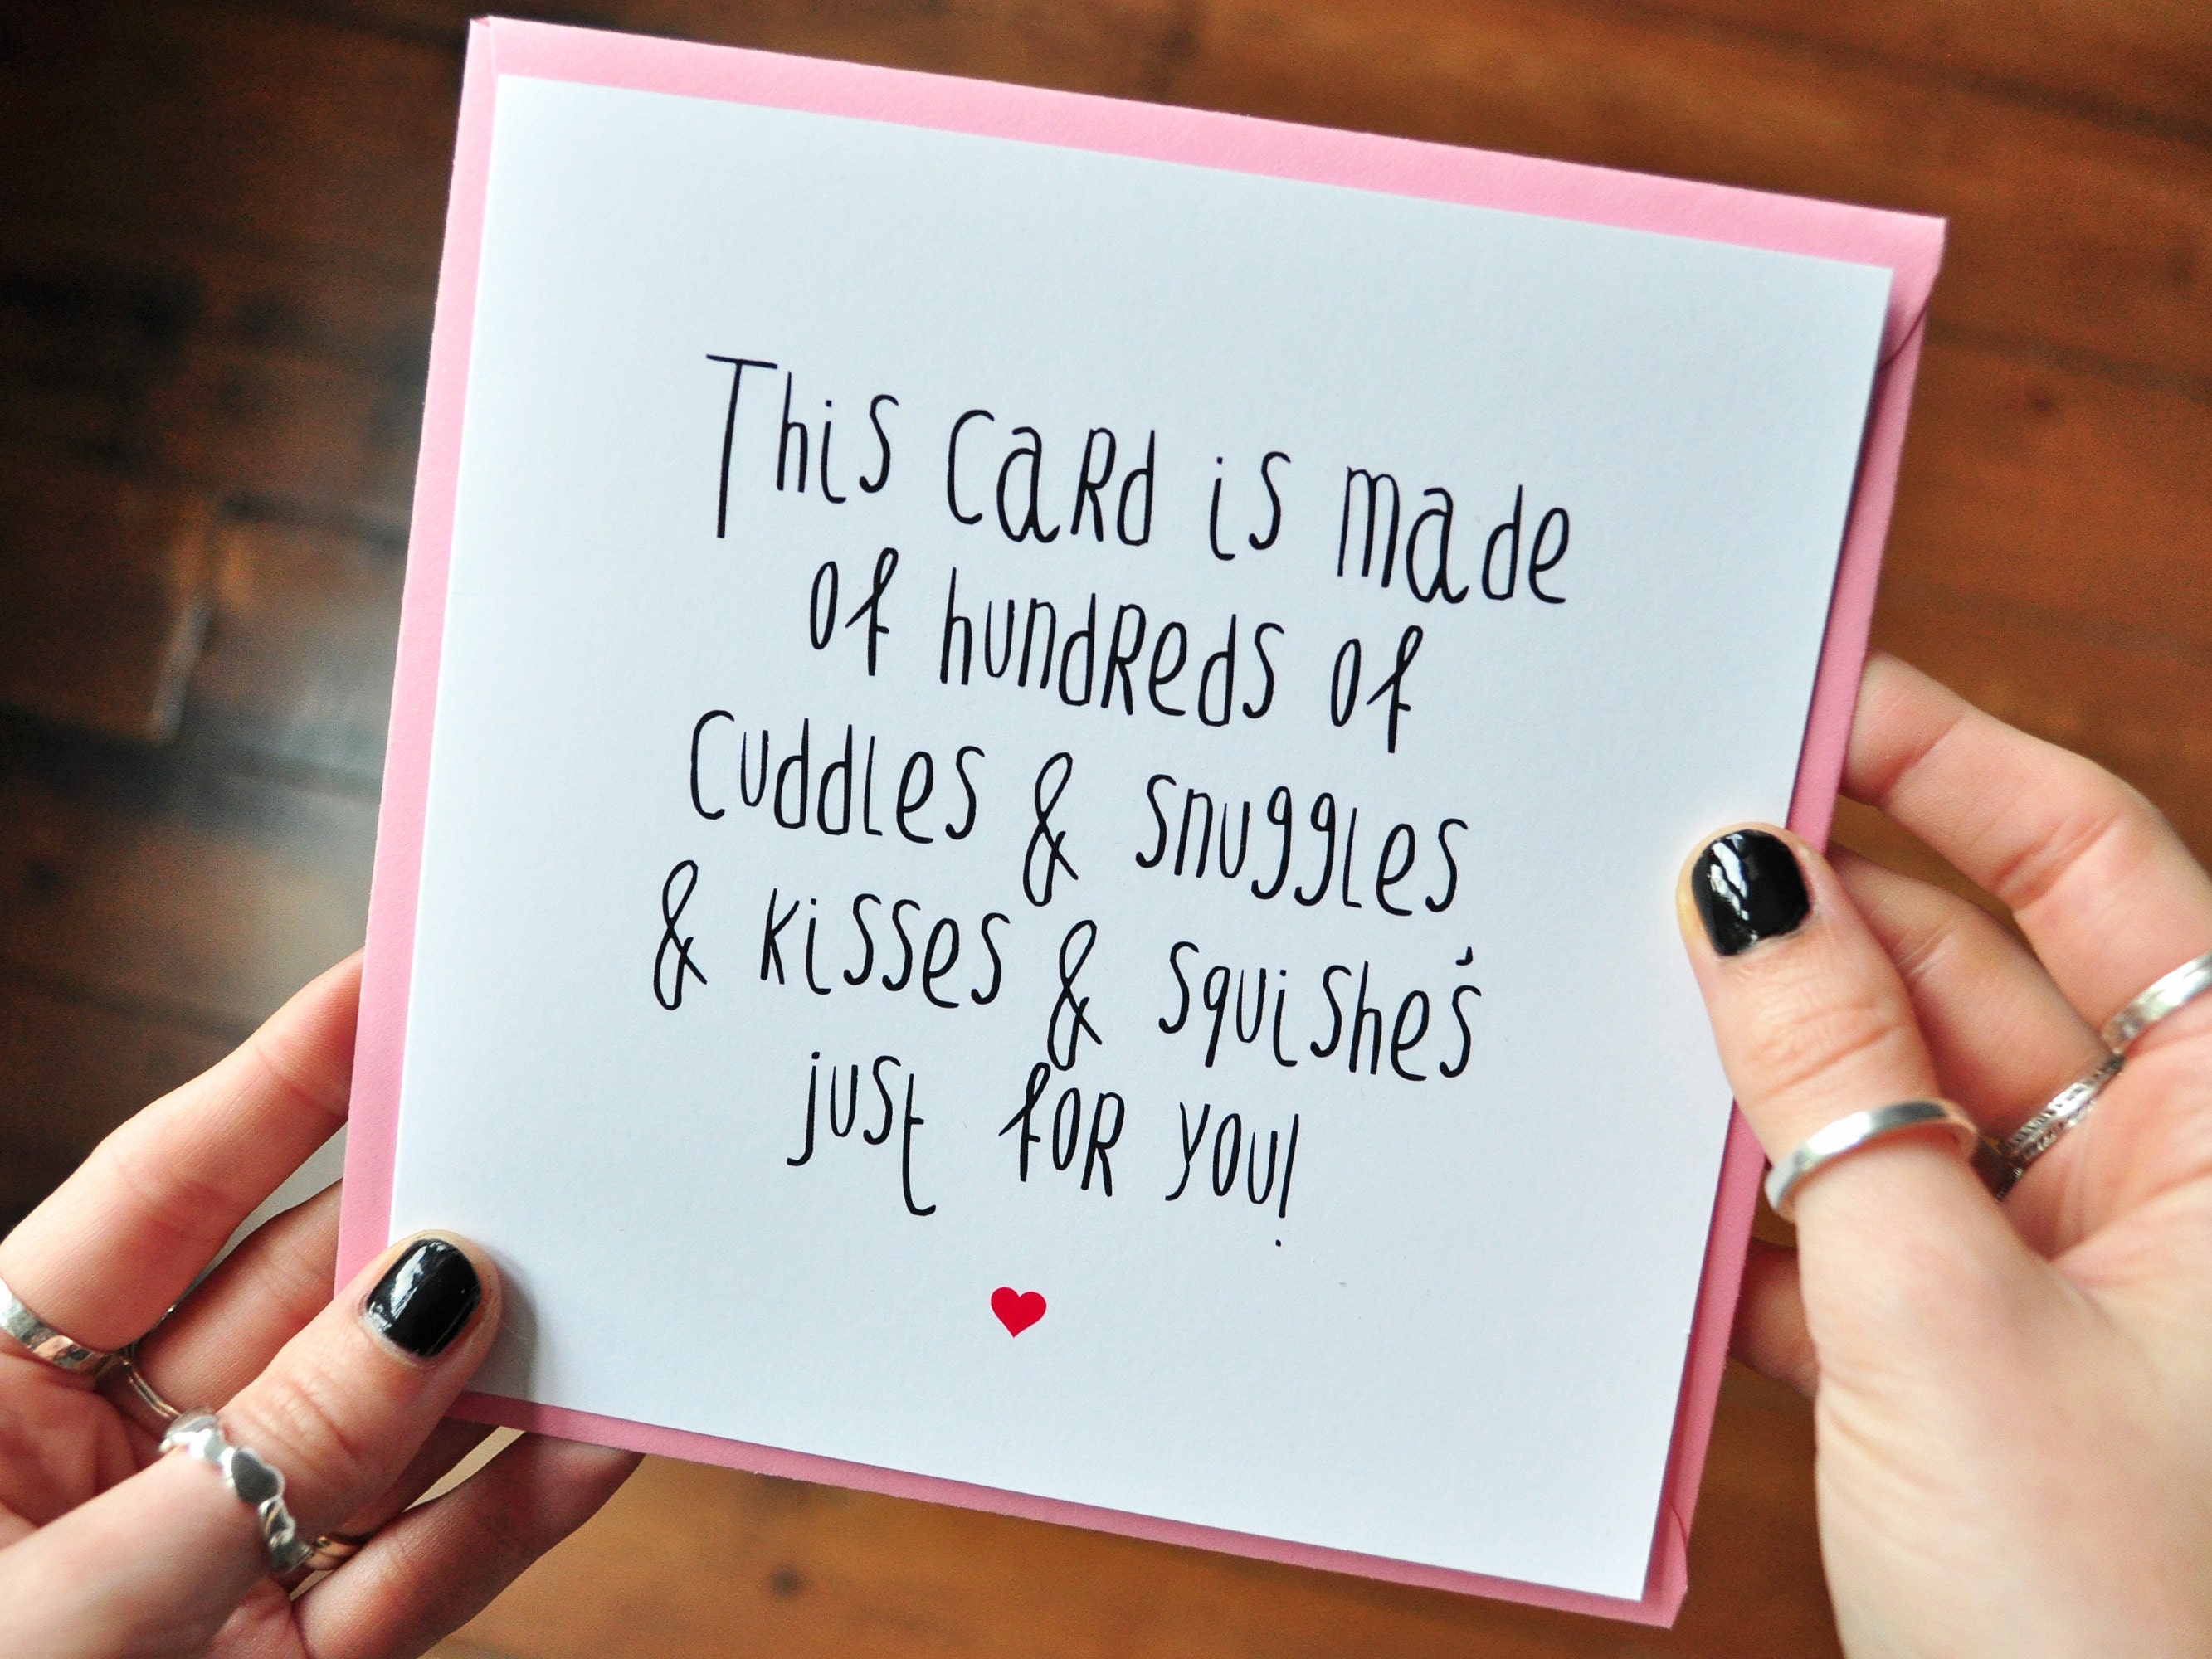 This card is made
of hundreds of
cuddles & snuggles
& kisses & squishe's
just for you!